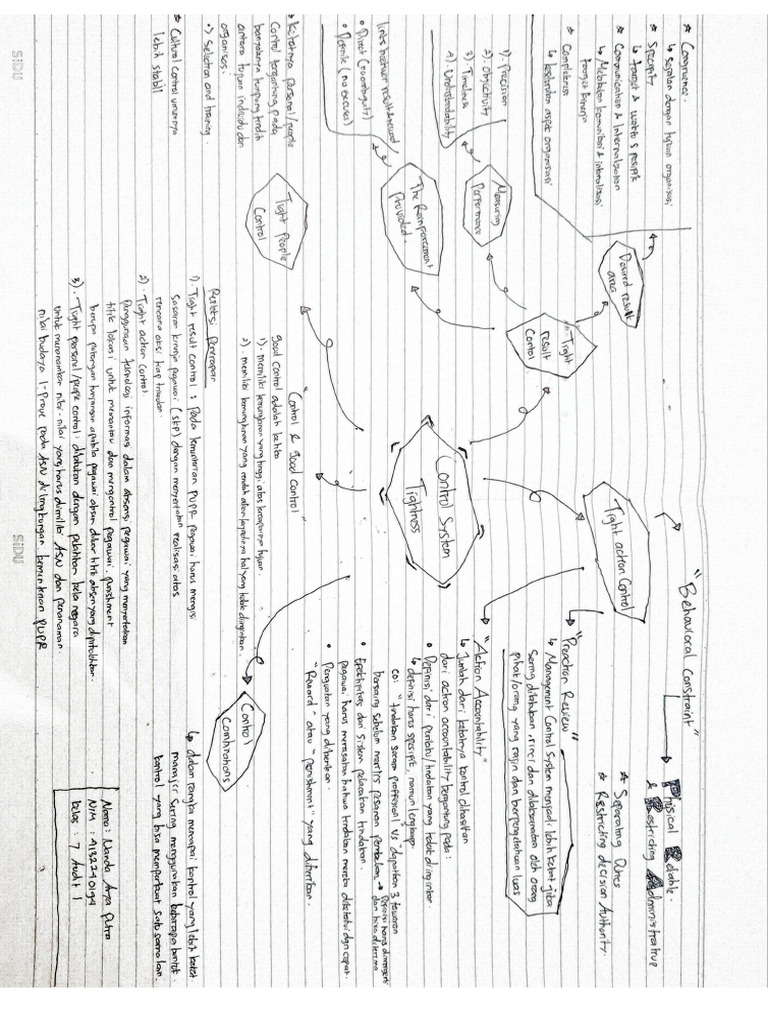 "Behavioral Constraint"
Phisical
administrative
★ Separating Duties
★ Restricting decision Authority.
★ Congruence.
↳ sejalan dengan tujuan organisasi
★ Specificity
↳ target & waktu spesifik
★ Communication & Internalization
↳ Melakukan komunikasi & internalisasi
target kinerja
★ Completeness
↳ keseluruhan aspek organisasi
Desired result
area
Tight
result
Control
Tight action Control
"Preaction Review"
↳ Management Control System menjadi lebih ketat jika
sering dilakukan, rinci dan dilaksanakan oleh orang
pihak/orang yang rajin dan berpengetahuan luas
1). Precision
2). Objectivity
3). Timeliness
4). Understandability
Measuring
performance
"Action Accountability"
↳ Jumlah dari ketatnya kontrol dihasilkan
dari action accountability bergantung pada:
• Definisi dari perilaku/tindakan yang tidak diinginkan.
↳ definisi harus spesifik, namun lengkap.
co: "tindakan secara proffesional" Vs "dapatkan 3 tawaran
bersaing sebelum merilis pesanan pembelian →
Definisi harus dimengerti
dan bisa diterima
• Efektivitas dari sistem pelacakan tindakan.
pegawai harus merasakan bahwa tindakan mereka diketahui dgn cepat.
• Penguatan yang diberikan.
"Reward" atau "punishment" yang diberikan.
Control System
Tightness
The Reinforcement
Provided.
links between result & reward
• Direct (no ambiguity)
• Definite (no excuses)
Tight People
Control
• Ketatnya personal/people
Control tergantung pada
banyaknya tumpang tindih
antara tujuan individu dan
organisasi:
•) Selection and training.
★ Cultural control umumnya
lebih stabil
"Control & good Control"
good control adalah ketika
1). memiliki kemungkinan yang tinggi atas tercapainya tujuan.
2). memiliki kemungkinan yang rendah akan terjadinya hal yang tidak diinginkan.
Control
Combinations
↳ dalam rangka mencapai kontrol yang lebih ketat
manajer sering menggunakan beberapa bentuk
kontrol yang bisa memperkuat satu sama lain.
Refleksi Penerapan
1). Tight result control : Pada kementerian PUPR pegawai harus mengisi
Sasaran kinerja pegawai (skp) dengan menyertakan realisasi atas
rencana aksi tiap triwulan.
2). Tight action control
Penggunaan teknologi informasi dalam absensi pegawai yang menyertakan
titik lokasi untuk memantau dan mengontrol pegawai. punishment
berupa potongan tunjangan apabila pegawai absen diluar titik absen yang diperbolehkan.
3). Tight personal/people control: dilakukan dengan pelatihan bela negara
untuk menanamkan nilai-nilai yang harus dimiliki ASN dan penanaman.
nilai budaya I-Prove pada ASN di lingkungan kementerian PUPR
Nama : Nanda Arya Putra
NIM : 4132290194
kelas : 7 Audit 1
SIDU
SIDU